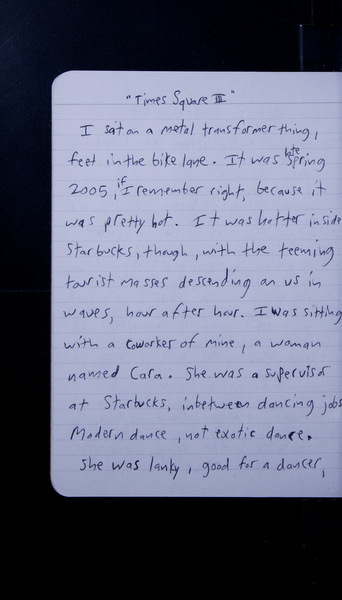 "Times Square III"
I sat on a metal transformer thing,
feet in the bike lane. It was late spring
2005, if I remember right, because it
was pretty hot. It was hotter inside
Starbucks, though, with the teeming
tourist masses descending on us in
waves, hour after hour. I was sitting
with a coworker of mine, a woman
named Cara. She was a supervisor
at Starbucks, inbetween dancing jobs
Modern dance, not exotic dance.
She was lanky, good for a dancer,